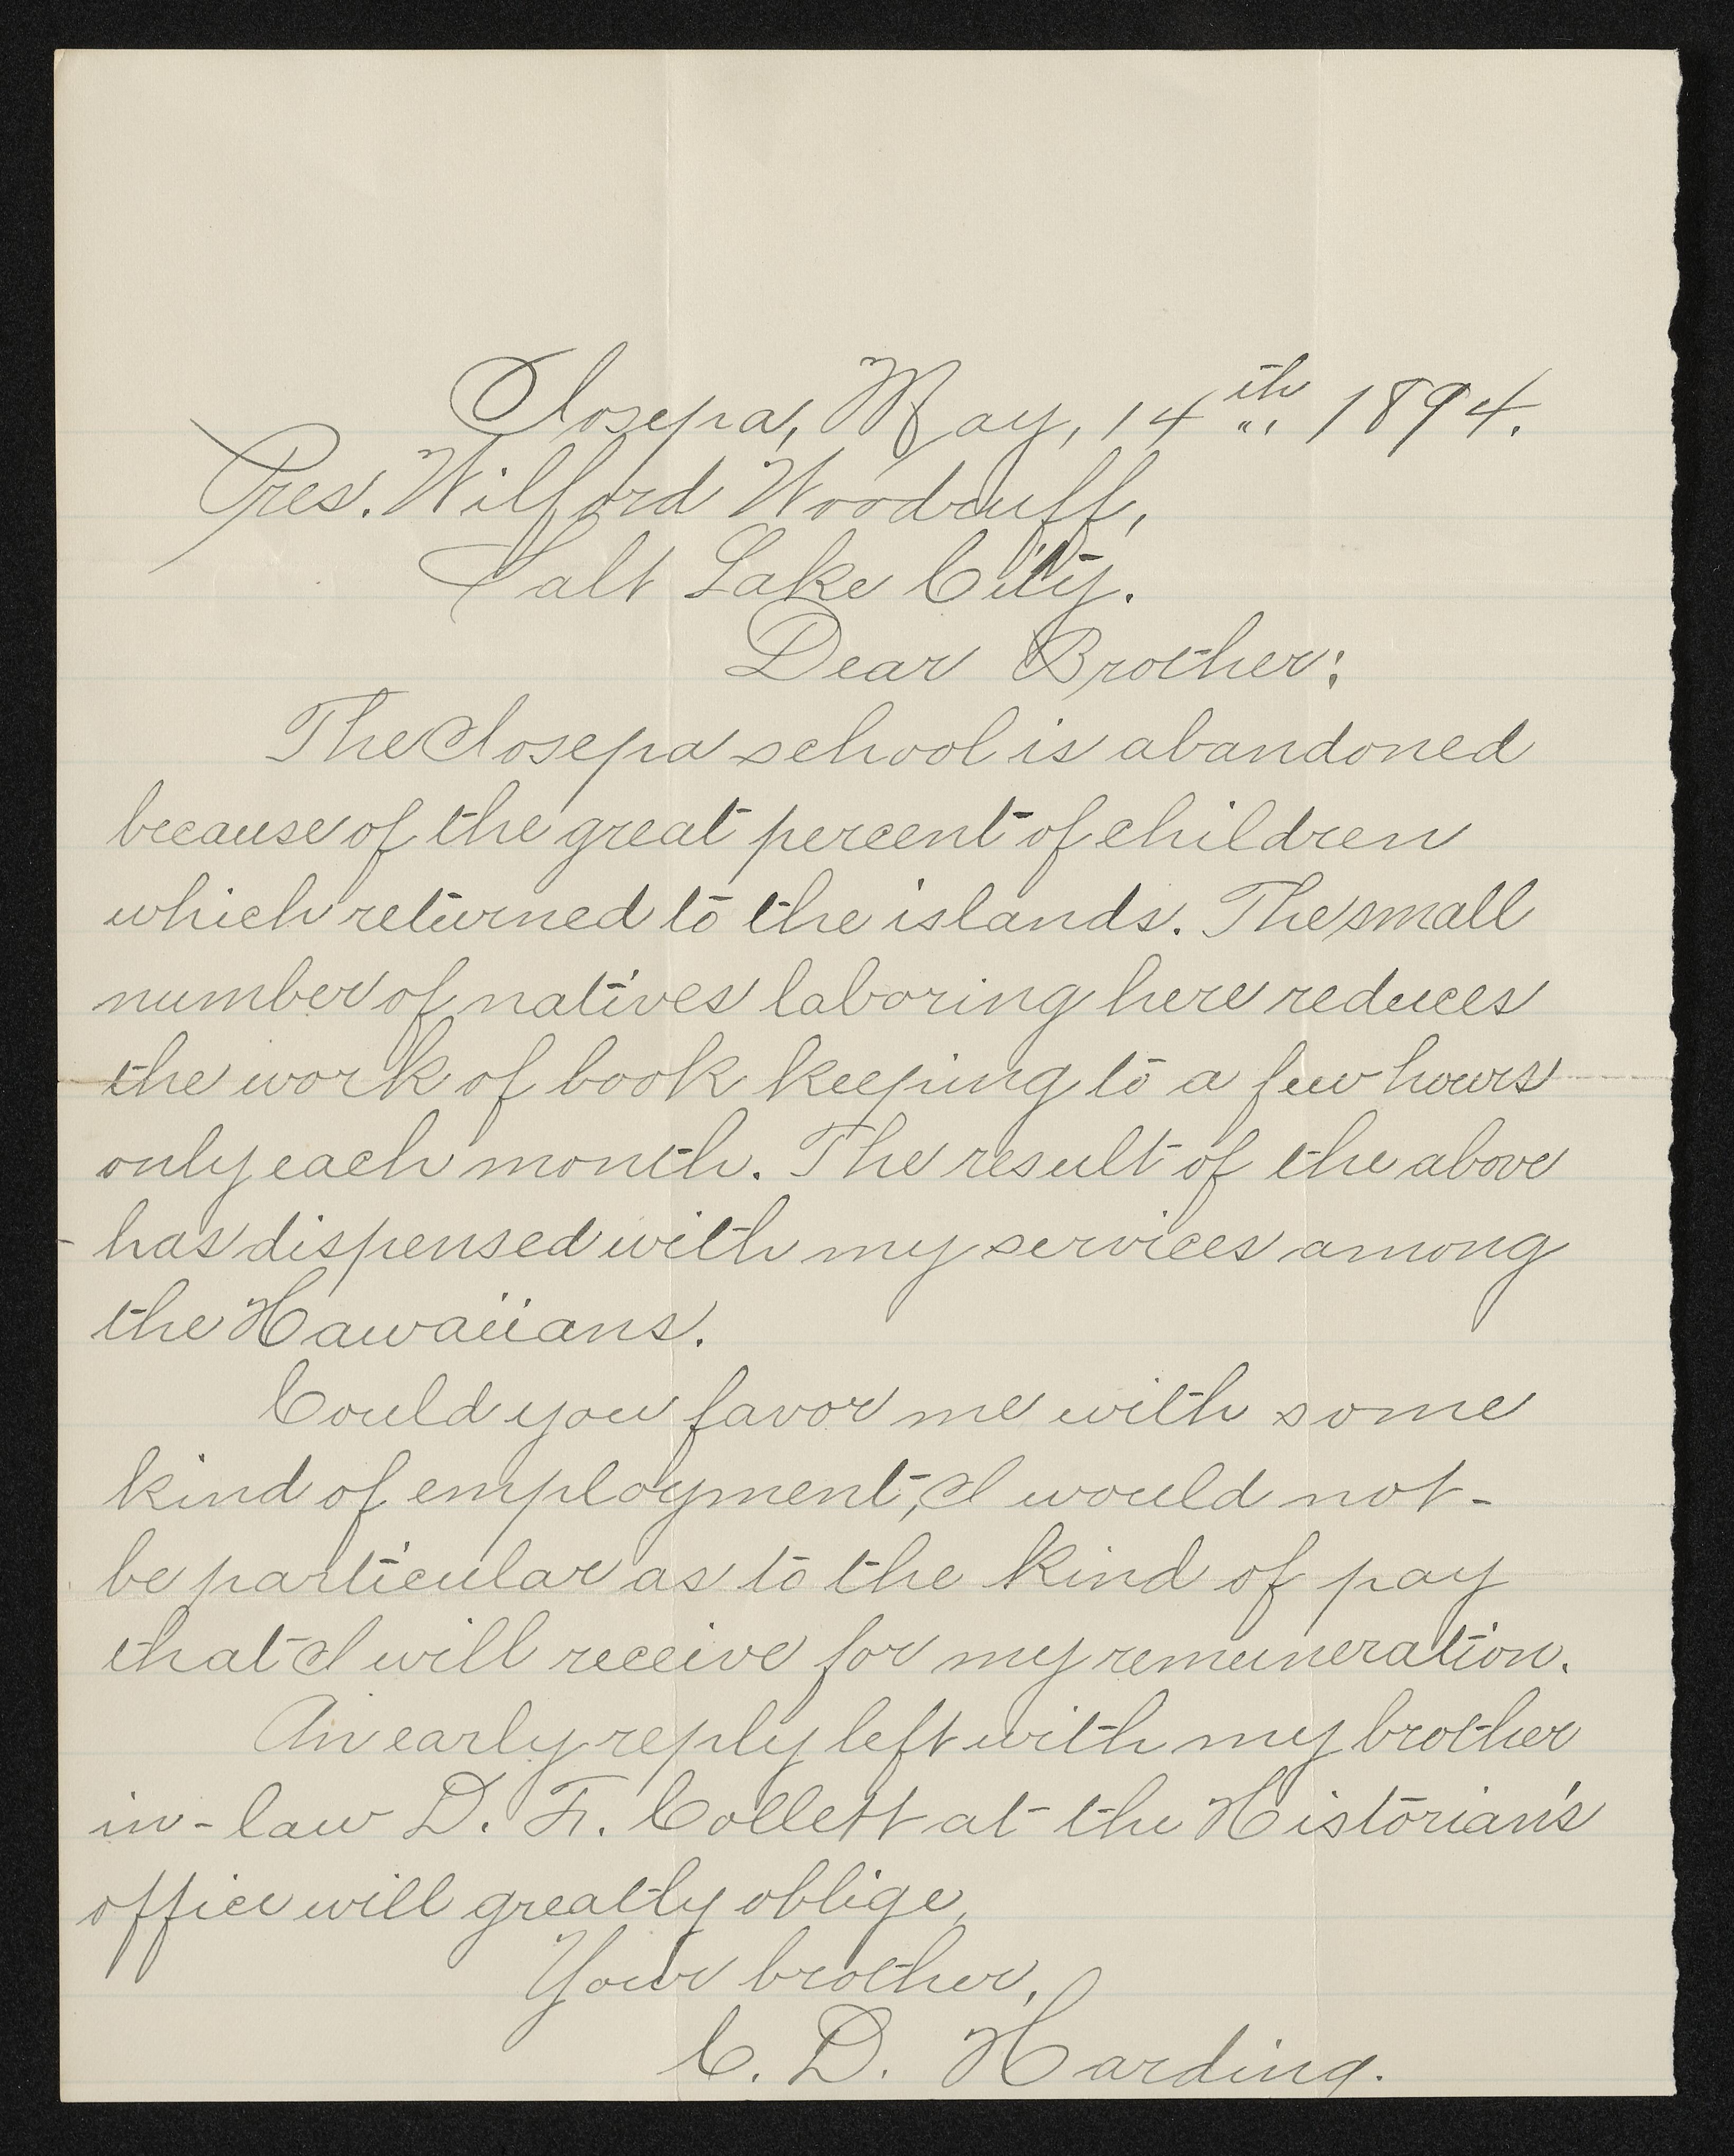 Iosepa, May, 14th 1894.
Pres. Wilford Woodruff,
Salt Lake City.
Dear Brother:
The Iosepa school is abandoned
because of the great percent of children
which returned to the islands. The small
number of natives laboring here reduces
the work of book keeping to a few hours
only each month. The result of the above
has dispensed with my services among
the Hawaiians.
Could you favor me with some
kind of employment, I would not
be particular as to the kind of pay
that I will receive for my remuneration.
An early reply left with my brother
in-law D. F. Collett at the Historian's
office will greatly oblige,
Your brother,
C. D. Harding.